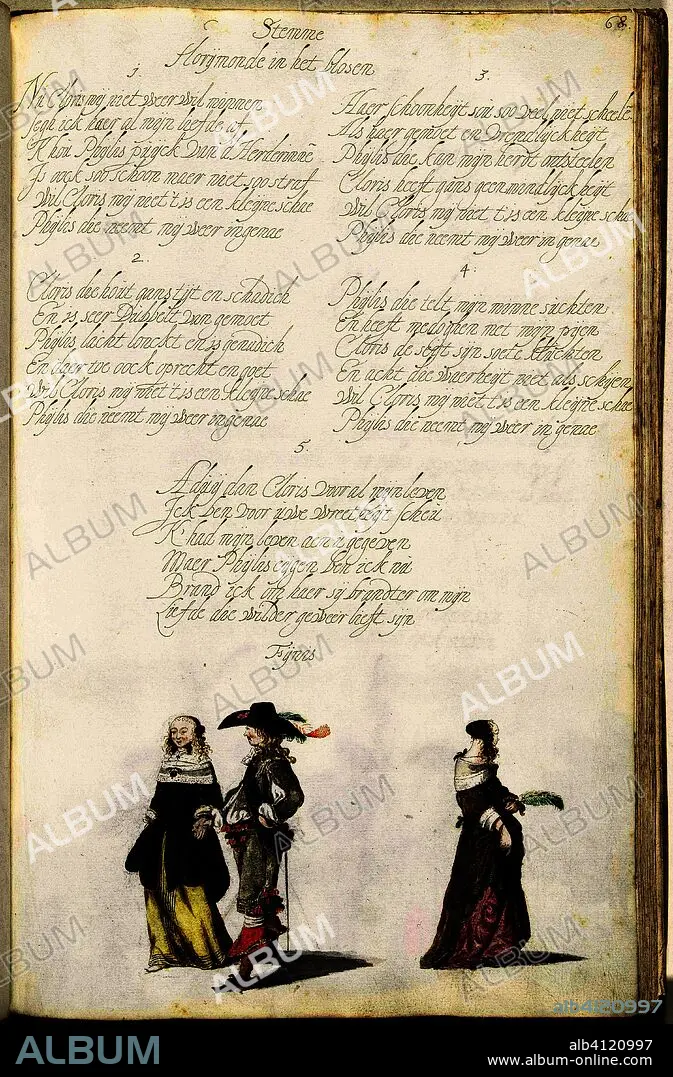 68
Stemme
Florijmonde in het blosen
1
Nu Cloris mij niet weer wil minnen
Segh ick haer al mijn liefde of
K hou Phylis puijck van al Herderinnē
Is oock soo schoon maer niet soo straf
Wil Cloris mij niet t is een kleijne schae
Phylis die neemt mij weer in genae
2.
Cloris die hout gans tijt en schadich
En is seer Dubbelt van gemoet
Phylis lacht lonckt en is genadich
En daer toe oock oprecht en goet
Wil Cloris mij niet t is een kleijne schae
Phylis die neemt mij weer in genae
3.
Haer schoonheijt sou soo veel niet scheele
Als haer gemoet en Vrendlijckheijt
Phylis die kan mijn hert ontsteelen
Cloris heeft gans geen mindlijckheijt
Wil Cloris mij niet t is een kleijne schae
Phylis die neemt mij weer in genae
4.
Phylis die telt mijn minne suchten
En heeft medoghen met mijn pijen
Cloris die seijt sijn soete kluchten
En acht die waerheijt niet als schijen
Wil Cloris mij niet t is een kleijne schae
Phylis die neemt mij weer in genae
5.
Adieij dan Cloris Voor al mijn leven
Ick ben voor uwe wreetheijt schuu
K had mijn leven aen u gegeven
Maer Phylis eijgen ben ick nu
Brand ick om haer sij brandter om mijn
Liefde die wil der geweer lieft sijn
Fijnis
ALBUM
alb4120997
ALBUM
alb4120997
www.album-online.com